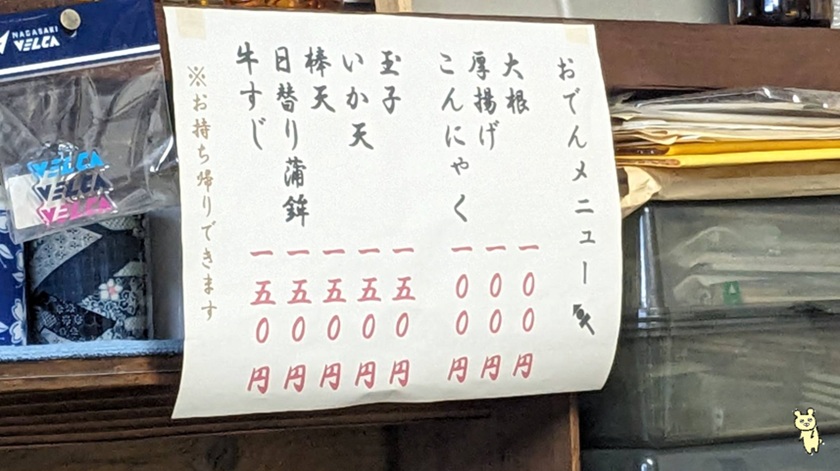 おでんメニュー
大根 一〇〇円
厚揚げ 一〇〇円
こんにゃく 一〇〇円
玉子 一五〇円
いか天 一五〇円
棒天 一五〇円
日替り蒲鉾 一五〇円
牛すじ 一五〇円
※お持ち帰りできます
NAGASAKI
VELCA
VELCA
VELCA
VELCA